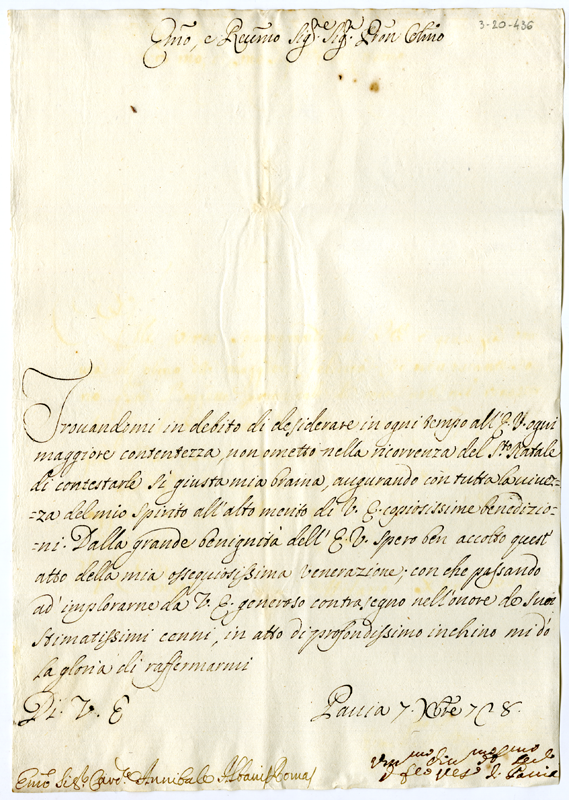 3-20-436
Emo, e Revmo Sigr. Sigr. Pron Colmo
Trovandomi in debito di desiderare in ogni tempo all'E. V. ogni
maggiore contentezza, non ometto nella ricorrenza del Sto Natale
di contestarle sì giusta mia brama, augurando con tutta la vivez-
-za del mio spirito all'alto merito di V. E. copiosissime benedizio-
-ni. Dalla grande benignità dell'E. V. spero ben accolto quest'
atto della mia ossequiosissima venerazione; con che passando
ad' implorarne da V. E. generoso contrasegno nell'onore de suoi
stimatissimi cenni, in atto di profondissimo inchino mi dò
la gloria di raffermarmi
Di. V. E
Pavia 7. Xbre 728.
Emo Sigr. Cardle Annibale Albani Roma
Vesco di Pavia